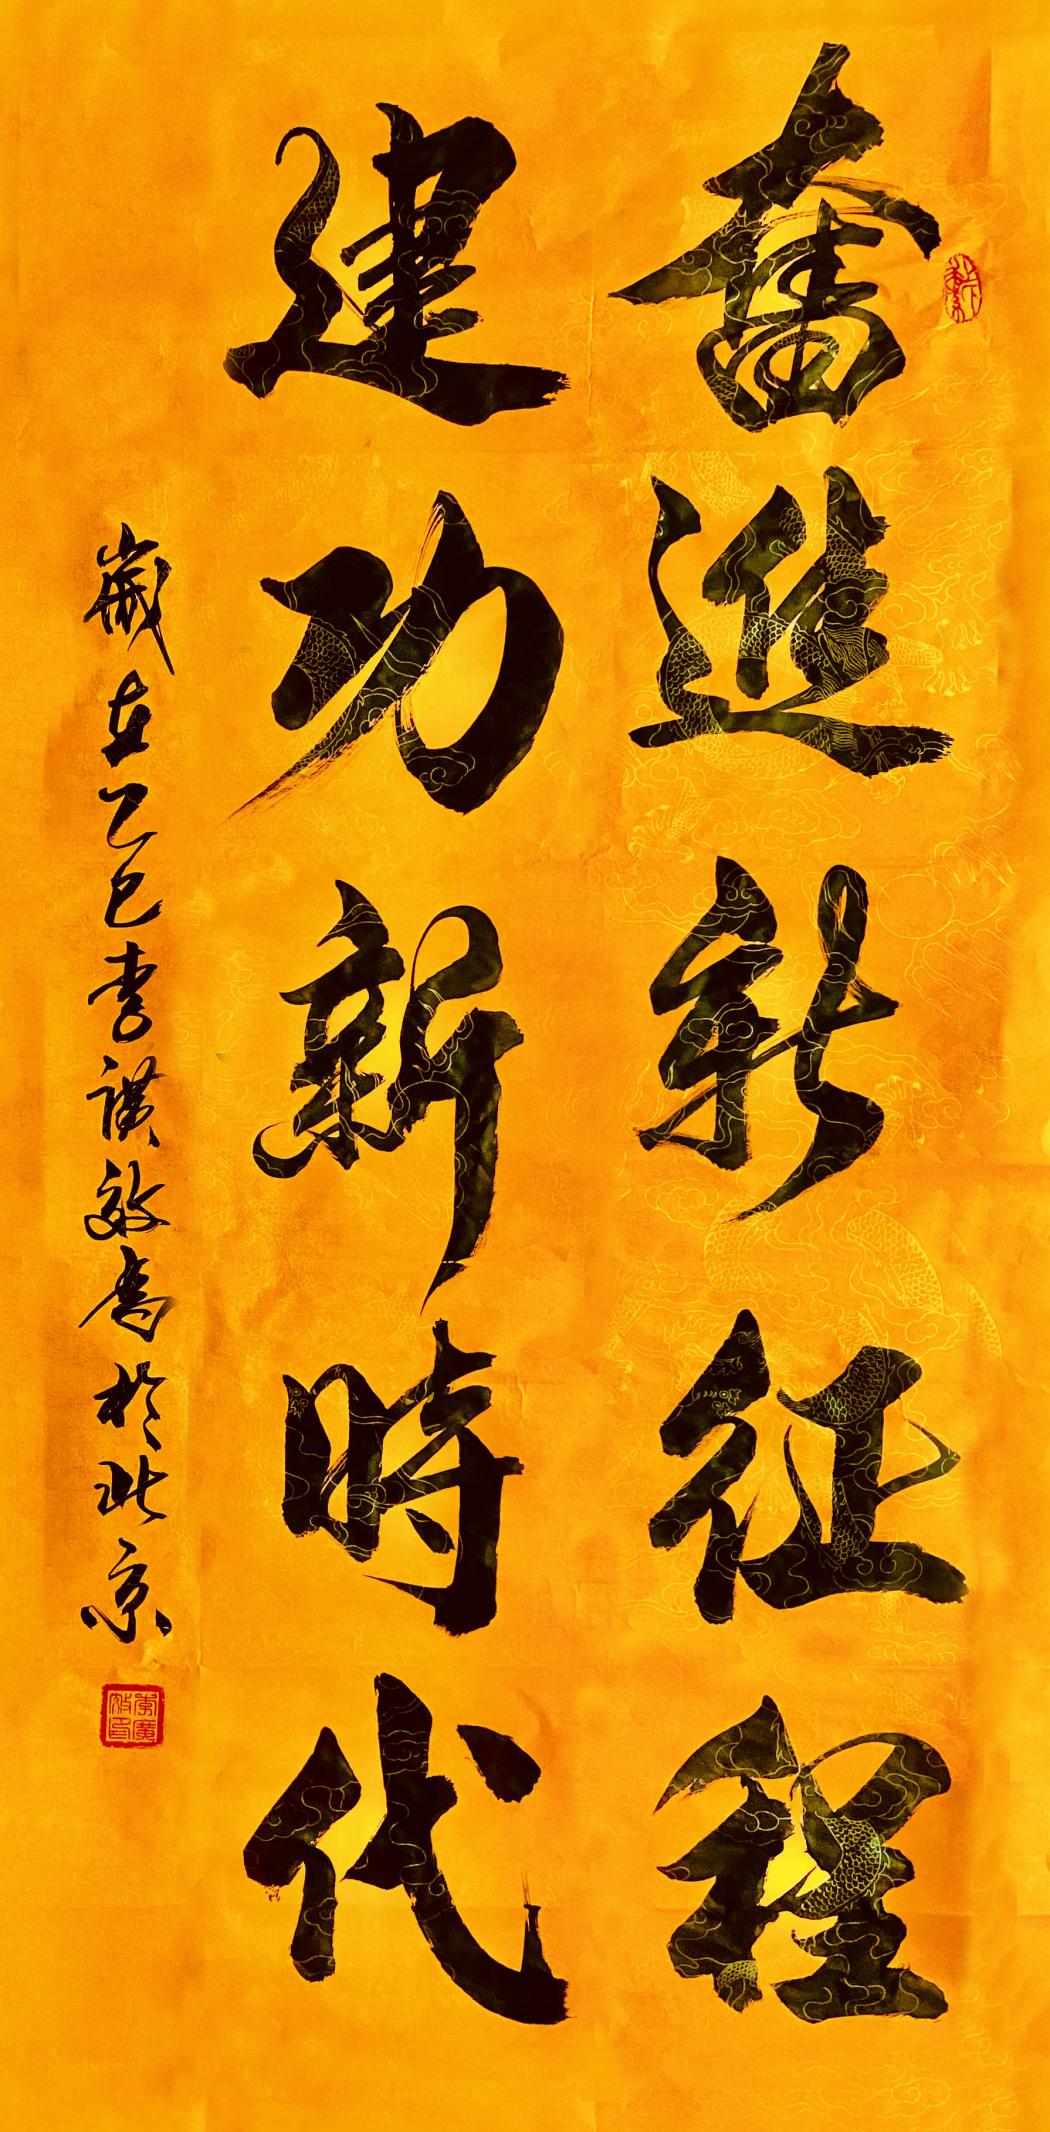 奮進新征程
建功新時代
歲在乙巳李效書於北京